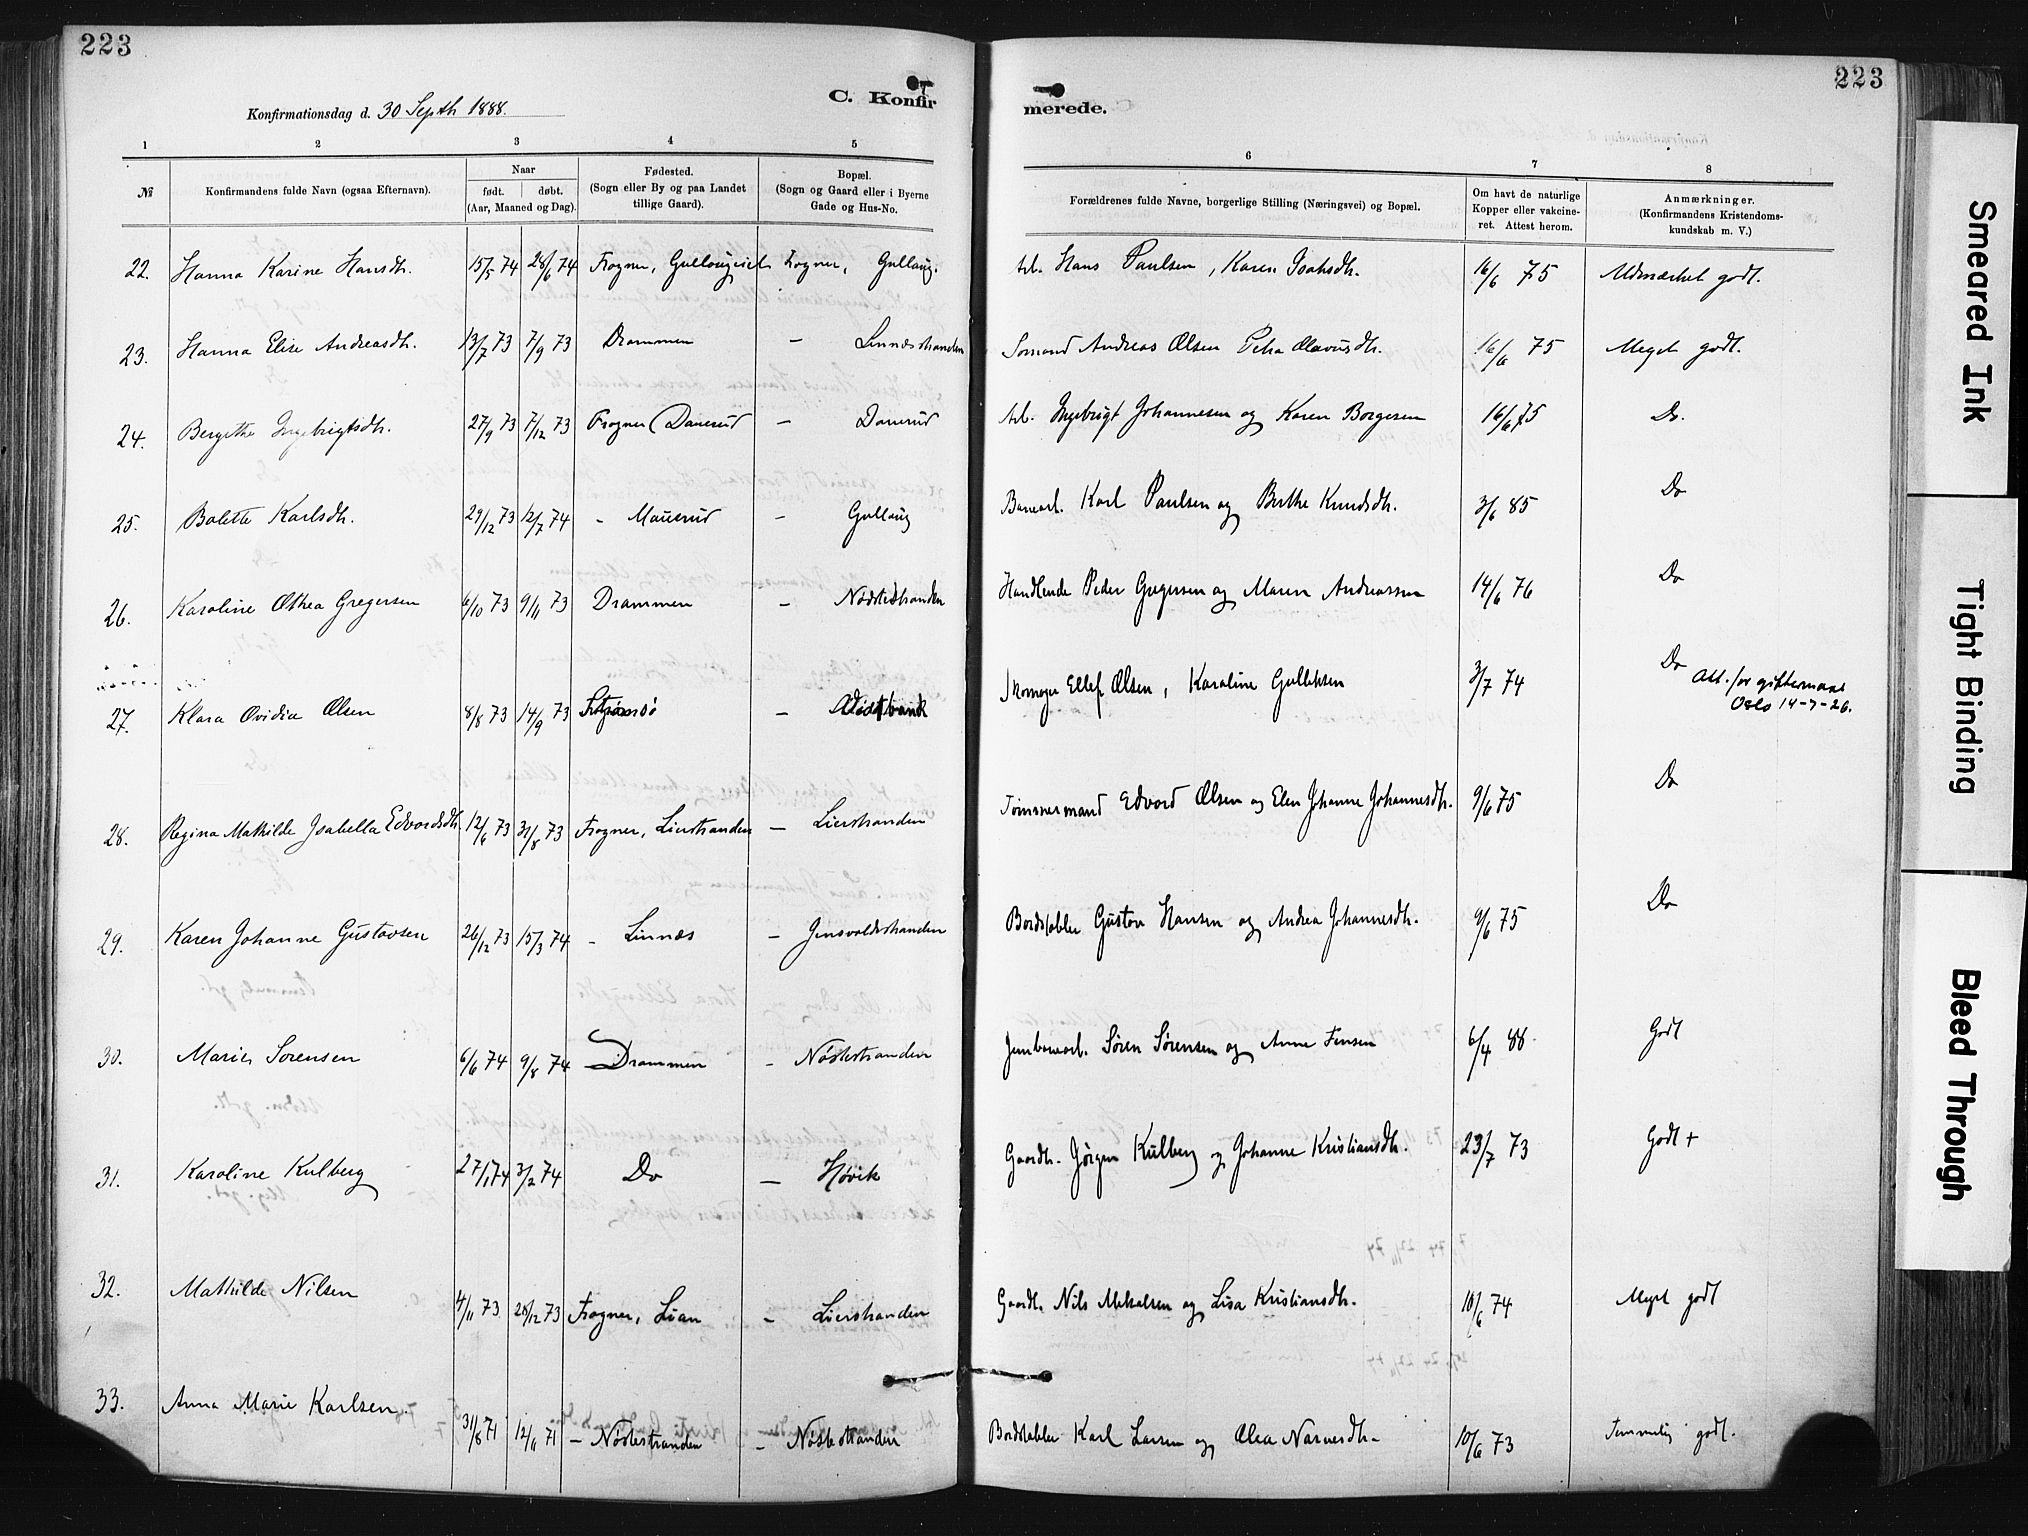 223
223
Konfirmationsdag d. 30 Septb 1888.
C. Konfir
merede.
1 2 3 4 5 6 7 8
№
Konfirmandens fulde Navn (ogsaa Efternavn).
Naar
født. døbt.
(Aar, Maaned og Dag).
Fødested.
(Sogn eller By og paa Landet
tillige Gaard).
Bopæl.
(Sogn og Gaard eller i Byerne
Gade og Hus-No.
Forældrenes fulde Navne, borgerlige Stilling (Næringsvei) og Bopæl.
Om havt de naturlige
Kopper eller vakcine-
ret. Attest herom.
Anmærkninger.
(Konfirmandens Kristendoms-
kundskab m. V.)
22. Hanna Karine Hansdh. 15/5 74 28/6 74 Frogner, Gullougeiet Frogner, Gulloug. Arb. Hans Paulsen, Karen Isaksdh. 16/6 75 Udmærket godt.
23. Hanna Elise Andreasdh. 13/7 73 7/9 73 Drammen – Linnesstranden Sømand Andreas Olsen Petra Olavusdh. 16/6 75 Meget godt.
24. Bergithe Ingebrigtsdh. 27/9 73 7/12 73 Frogner (Donerud – Donerud Arb. Ingebrigt Johannesen og Karen Borgesen 16/6 75 Do.
25. Bolette Karlsdh. 29/12 73 12/7 74 – Mauerud – Gulloug Banearb. Karl Paulsen og Berthe Knudsdh. 3/6 85 Do
26. Karoline Othea Gregersen 6/10 73 9/11 73 Drammen – Nøstestranden Handlende Peder Gregersen og Maren Andreassen 14/6 76 Do
27. Klara Ovidia Olsen 8/8 73 14/9 73 Strømsø – Skomager Ellef Olsen, Karoline Gulliksen 3/7 74 Do
Att. for giftermaal
Oslo 14-7-26.
28. Regina Mathilde Isabella Edvordsdh. 12/6 73 31/8 73 Frogner, Lierstranden – Lierstranden Tømmermand Edvord Olsen og Elen Johanne Johannesdh. 9/6 75 Do
29. Karen Johanne Gustavsen 26/12 73 15/3 74 – Linnes – Jensvoldstranden Bordstabler Gustav Hansen og Andrea Johannesdh. 9/6 75 Do
30. Marie Sørensen 6/6 74 9/8 74 Drammen – Nøstestranden Jernbanearb. Søren Sørensen og Anne Jensen 6/4 88 Godt
31. Karoline Kulberg 27/1 74 3/2 74 Do – Høvik Gaardb. Jørgen Kulberg og Johanne Kristiansdh. 23/7 73 Godt +
32. Mathilde Nilsen 4/11 73 26/12 73 Frogner, Lian – Lierstranden Gaardb. Nils Mikalsen og Lisa Kristiansdh. 10/6 74 Meget godt
33. Anna Marie Karlsen. 31/8 71 12/11 71 – Nøstestranden – Nøstestranden Bordstabler Karl Larsen og Olea Narvesdh. 10/6 73 Temmelig godt.
Smeared Ink
Tight Binding
Bleed Through